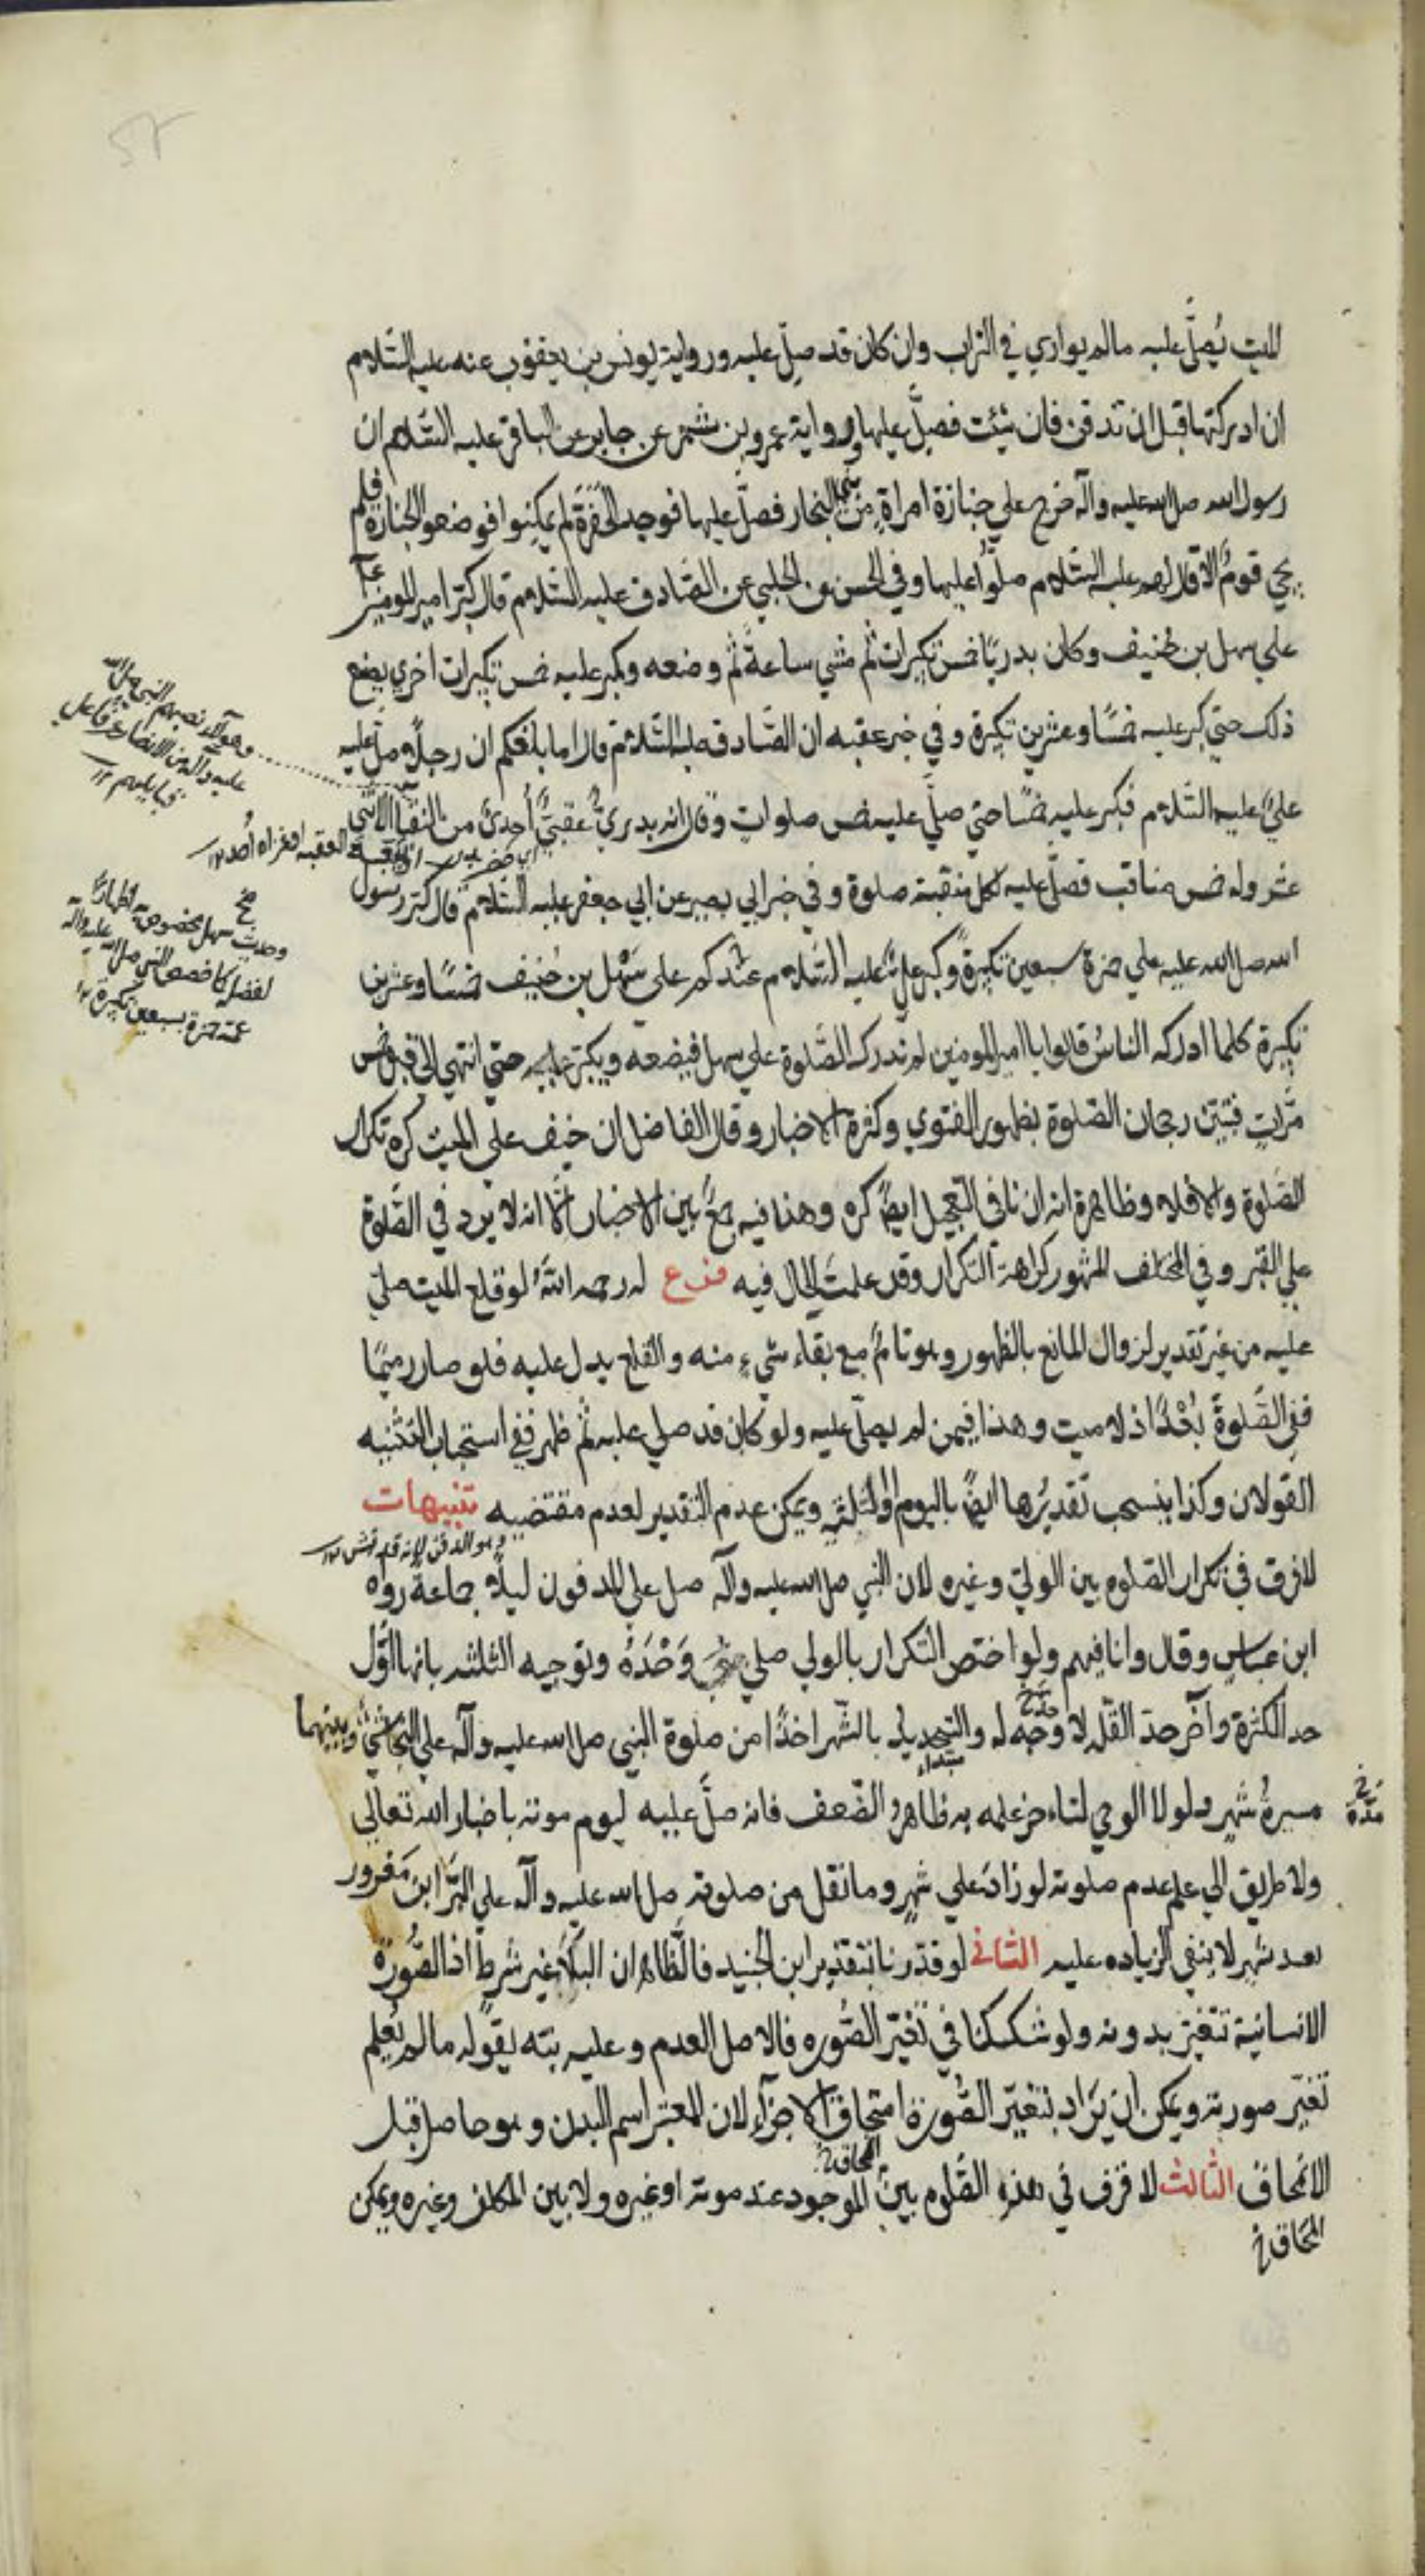 الميت يُصلَّى عليه مالم يواري في التراب وان كان قد صلّي عليه ورواية يونس بن يعقوب عنه عليه السّلام
ان ادركتها قبل ان تدفن فان شئت فصلِّ عليها ورواية عمرو بن شمر عن جابر عن الباقر عليه السّلام ان
رسول الله صلى الله عليه وآله خرج علي جنازة امراةٍ من بني النجار فصلّي عليها فوجد الحفرة لم يمكنوا فوضعوا الجنازة فلم
يجئ قومٌ الا قال لهم عليه السّلام صلّوا عليها وفي الحسن عن الحلبي عن الصّادق عليه السّلام قال كبّر امير المومنين
علي سهل بن حُنيف وكان بدريًا خمس تكبيرات ثم مشي ساعةً ثم وضعه وكبر عليه خمس تكبيرات اخري يصنع
ذلك حتي كبر عليه خمسًا وعشرين تكبيرة وفي خبر عقبه ان الصّادق عليه السّلام قال اما بلغكم ان رجلاً صلّي عليه
عليٌ عليه السّلام فكبر عليه خمسًا حتي صلّي عليه خمس صلوات وقال انه بدريٌّ عقبيٌّ أحديٌ من النقباء الاثني
عشر وله خمس مناقب فصلّي عليه لكل منقبة صلوة وفي خبر ابي بصير عن ابي جعفر عليه السّلام قال كبّر رسول
الله صلى الله عليه علي حمزة سبعين تكبيرةً وكبّر عليٌّ عليه السّلام عندكم علي سَهْل بن حُنيف خمسًا وعشرين
تكبيرة كلما ادركه الناس قالوا يا امير المومنين لم ندرك الصّلوة علي سهل فيضعه ويكبّر عليه حتي انتهي الي قبره خمس
مرّاتٍ فتبيّن رجحان الصّلوة بظهور الفتوي وكثرة الاخبار وقال الفاضل ان خيف علي الميت كره تكرار
الصّلوة والا فلا وظاهره انه ان نافي التعجيل ايضًا كره وهذا فيه جمعٌ بين الاخبار الّا انه لا يرد في الصّلوة
علي القبر وفي المختلف المشهور كراهة التكرار وقد علمتَ الحال فيه فرع له رحمه اللهُ لو قلع الميت صلّي
عليه من غير تقدير لزوال المانع بالظهور وهو تامٌّ مع بقاء شيءٍ منه والقلع يدل عليه فلو صار رميمًا
ففي الصّلوة بُعْدٌ اذ لا ميت وهذا فيمن لم يصلّي عليه ولو كان قد صلي عليه ثم ظهر ففي استحباب التثنيه
القولان وكذا ينسحب تقديرها ايضًا باليوم او الثلثة ويمكن عدم التقدير لعدم مقتضيه تنبيهات
وهو الدفن لانه قد نبش ١٢
لا فرق في تكرار الصّلوة بين الوليّ وغيره لان النبي صلى الله عليه وآله صلى على المدفون ليلاً جماعة رواه
ابن عباس وقال وانا فيهم ولو اختص التكرار بالولي صلي وَحْدَهُ وتوجيه الثلثه بانها اوّل
حد الكثرة وآخر حد القلّه لا وجه له والتحديد بالشهر اخذًا من صلوة النبي صلى الله عليه وآله علي النجاشي وبينهما
مسيرة شهر ولولا الوحي لتاخر علمه به ظاهرُ الضّعف فانه صلّي عليه ليوم موته باخبار الله تعالي
ولا طريق الي علم عدم صلوته لو زاد علي شهرٍ وما نقل من صلوته صلى الله عليه وآله علي البَرَّاء بن مَعرور
بعد شهر لا ينفي الزياده عليه الثاني لو قدّرنا بتقدير ابن الجنيد فالظّاهر ان البلاَ غير شرط اذ الصُّورة
الانسانية تتغيّر بدونه ولو شككنا في تغيّر الصُّوره فالاصل العدم وعليه نبّه بقوله مالم يُعلم
تغيّر صورته ويمكن ان يُراد بتغيّر الصُّورة امتحاق الاجزاء لان المعتبر اسم البدن وهو حاصل قبل
الانمحاق الثالث لا فرق في هذه الصّلوة بين الموجود عند موته او غيره ولا بين المكلف وغيره ويمكن
المحاق خ
وهولاء نصبهم النبي صلى الله
عليه وآله من الانصار عرفا علي
قبايلهم ١٢
العقبه او غزاه أُحد ١٢
وحديث سهل مخصوص به اظهارًا
لفضله كما خصص النبي صلى الله عليه وآله
عمّه حمزة بسبعين تكبيرة ١٢
مدّة